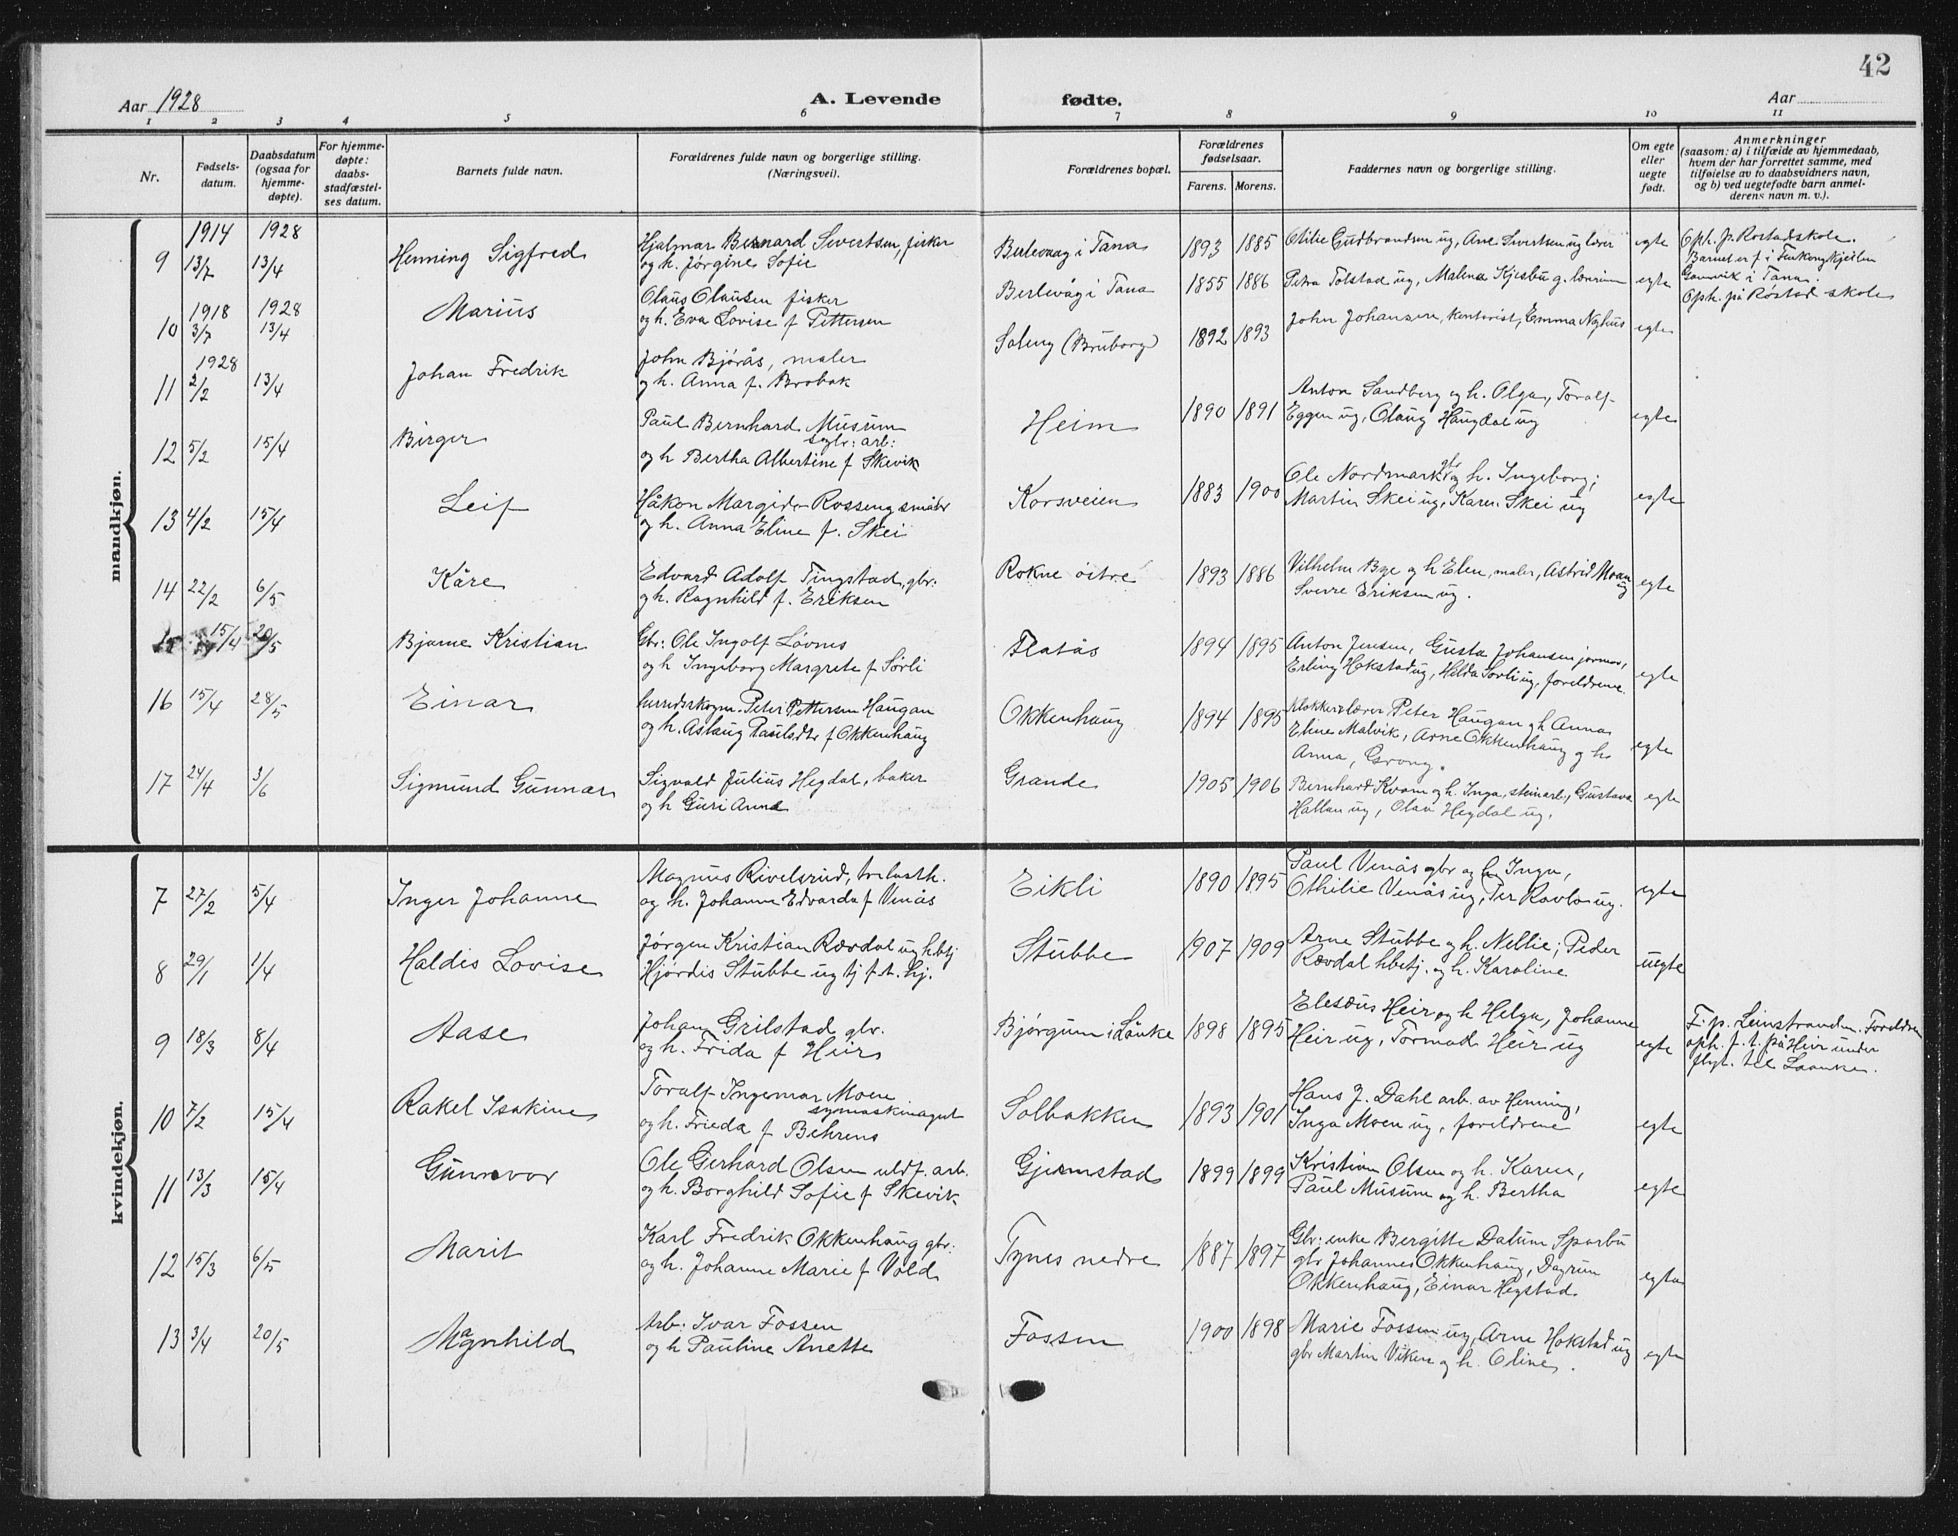 42
Aar 1928
A. Levende
fødte.
Aar
1 2 3 4 5 6 7 8 9 10 11
Nr.
Fødsels-
datum.
Daabsdatum
(ogsaa for
hjemme-
døpte).
For hjemme-
døpte:
daabs-
stadfæstel-
ses datum.
Barnets fulde navn.
Forældrenes fulde navn og borgerlige stilling.
(Næringsvei).
Forældrenes bopæl.
Forældrenes
fødselsaar.
Farens. Morens.
Faddernes navn og borgerlige stilling.
Om egte
eller
uegte
født.
Anmerkninger
(saasom: a) i tilfælde av hjemmedaab,
hvem der har forrettet samme, med
tilføielse av to daabsvidners navn,
og b) ved uegtefødte barn anmel-
derens navn m. v.).
mandkjøn.
9 1914 13/7 1928 13/4 Henning Sigfred
Hjalmar Bernard Sivertsen, fisker
og h. Jørgine Sofie
Berlevaag i Tana 1893 1885
Otilie Gudbrandsen ug, Arne Sivertsen ug lærer
egte
Oph. p. Rostadskole.
Barnet er f i Finkongkjeilen
Gamvik i Tana.
10 1918 3/7 1928 13/4 Marius
Olaus Olausen fisker
og h. Eva Lovise f Pettersen
Berlevåg i Tana 1855 1886
Petra Tolstad ug, Malena Kjesbu g.
egte
Oph. på Røstad skole
11 1928 2/2 13/4 Johan Fredrik
John Bjørås, maler
og h. Anna f. Brobak
Soleng (Bruborg) 1892 1893
John Johansen, kontorist, Emma Nyhus
egte
12 5/2 15/4 Birger
Paul Bernhard Musum
sagbr: arb:
og h Bertha Albertine f Skevik
Heim 1890 1891
Anton Sandberg og h. Olga, Toralf
Eggen ug, Olaug Haugdal ug
egte
13 4/2 15/4 Leif
Håkon Margido Rosseng småbr
og h. Anna Eline f. Skei
Korsveien 1883 1900
Ole Nordmark gbr og h. Ingeborg;
Martin Skei ug, Karen Skei ug
egte
14 22/2 6/5 Kåre
Edvard Adolf Tingstad, gbr:
og h. Ragnhild f. Eriksen
Rokne östre 1893 1886
Vilhelm Bye og h Elen, maler, Astrid Moan ug
Sverre Eriksen ug.
egte
15 15/4 20/5 Bjarne Kristian
Gbr: Ole Ingolf Løvnes
og h Ingeborg Margrete f Sørli
Flatås 1894 1895
Anton Jensen, Gusta Johansen jormor,
Erling Hokstad ug, Hilda Sørli ug, foreldrene.
egte
16 15/4 28/5 Einar
herredskogm. Peter Pettersen Haugan
og h. Aslaug Paulsdtr f Okkenhaug
Okkenhaug 1894 1895
klokker lærer Peter Haugan g h Anna
Eline Malvik, Arne Okkenhaug g h
Anna, Grong.
egte
17 24/4 3/6 Sigmund Gunnar
Sigvald Julius Hegdal, baker
og h Guri Anna
Grande 1905 1906
Bernhard Kvam og h. Inga, steinarb., Gustava
Hallan ug, Olav Hegdal ug.
egte
kvindekjøn.
7 27/2 5/4 Inger Johanne
Magnus Rivelsrud, trelasth.
og h. Johanne Edvarda f Venås
Eikli 1890 1895
Paul Venås gbr og h Inga,
Othilie Venås ug, Per Ravlo ug.
egte
8 29/1 1/4 Haldis Lovise
Jørgen Kristian Rævdal ug hbtj
Hjørdis Stubbe ug tj f.t. hj.
Stubbe 1907 1909
Arne Stubbe og h. Nellie; Peder
Rævdal hbetj. og h. Karoline
uegte
9 18/3 8/4 Aase
Johan Grilstad gbr.
og h. Frida f Heir
Bjørgum i Lånke 1898 1895
Elesæus Heir og h Helga, Johanne
Heir ug, Tormod Heir ug
egte
F. p. Leinstranden. Foreldre
oph. f. t. på Heir under
flyt. til Laanke.
10 7/2 15/4 Rakel Isakine
Toralf Ingemar Moen
symaskinagent
og h. Frieda f Behrens
Solbakken 1893 1901
Hans J. Dahl arb. av Henning,
Inga Moen ug, foreldrene
egte
11 13/3 15/4 Gunnvor
Ole Gerhard Olsen uldf. arb.
og h. Borghild Sofie f Skevik
Gjemstad 1899 1899
Kristian Olsen og h. Karen,
Paul Musum og h. Bertha
egte
12 15/3 6/5 Marit
Karl Fredrik Okkenhaug gbr.
og h. Johanne Marie f Vold
Tynes nedre 1887 1897
Gbr: enke Bergitte Dalum, Sparbu
gbr Johannes Okkenhaug, Dagrun
Okkenhaug, Einar Hegstad
egte
13 3/4 20/5 Magnhild
Arb: Ivar Fossen
og h Pauline Anette
Fossen 1900 1898
Marie Fossen ug, Arne Hokstad ug
gbr Martin Viken og h. Oline.
egte